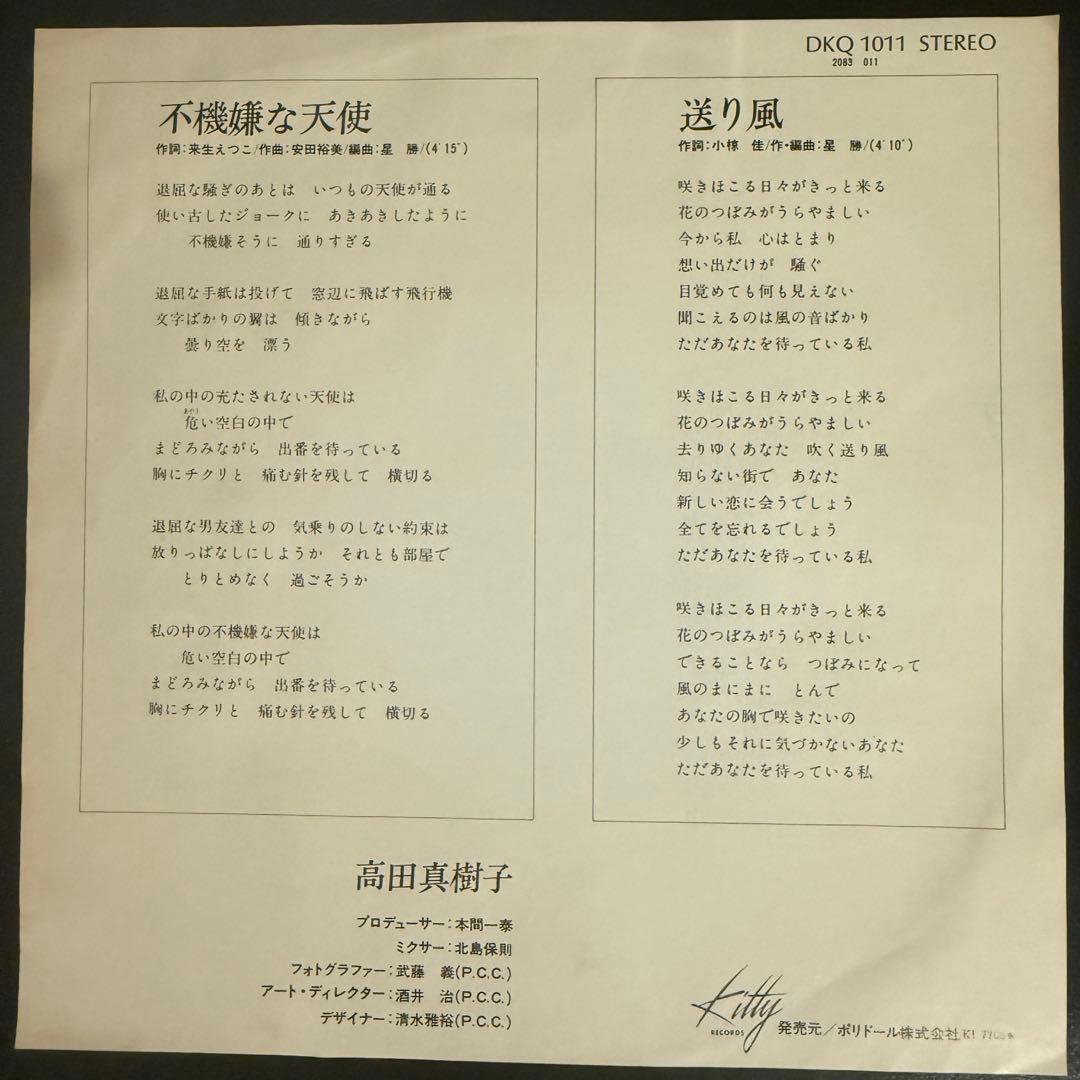 DKQ 1011 STEREO
2083 011
不機嫌な天使
作詞:来生えつこ/作曲:安田裕美/編曲:星 勝/(4'15")
退屈な騒ぎのあとは いつもの天使が通る
使い古したジョークに あきあきしたように
不機嫌そうに 通りすぎる
退屈な手紙は投げて 窓辺に飛ばす飛行機
文字ばかりの翼は 傾きながら
曇り空を 漂う
私の中の充たされない天使は
あやう
危い空白の中で
まどろみながら 出番を待っている
胸にチクリと 痛む針を残して 横切る
退屈な男友達との 気乗りのしない約束は
放りっぱなしにしようか それとも部屋で
とりとめなく 過ごそうか
私の中の不機嫌な天使は
危い空白の中で
まどろみながら 出番を待っている
胸にチクリと 痛む針を残して 横切る
送り風
作詞:小椋 佳/作・編曲:星 勝/(4'10")
咲きほこる日々がきっと来る
花のつぼみがうらやましい
今から私 心はとまり
想い出だけが 騒ぐ
目覚めても何も見えない
聞こえるのは風の音ばかり
ただあなたを待っている私
咲きほこる日々がきっと来る
花のつぼみがうらやましい
去りゆくあなた 吹く送り風
知らない街で あなた
新しい恋に会うでしょう
全てを忘れるでしょう
ただあなたを待っている私
咲きほこる日々がきっと来る
花のつぼみがうらやましい
できることなら つぼみになって
風のまにまに とんで
あなたの胸で咲きたいの
少しもそれに気づかないあなた
ただあなたを待っている私
高田真樹子
プロデューサー:本間一泰
ミクサー:北島保則
フォトグラファー:武藤 義(P.C.C.)
アート・ディレクター:酒井 治(P.C.C.)
デザイナー:清水雅裕(P.C.C.)
Kitty
RECORDS
発売元/ポリドール株式会社